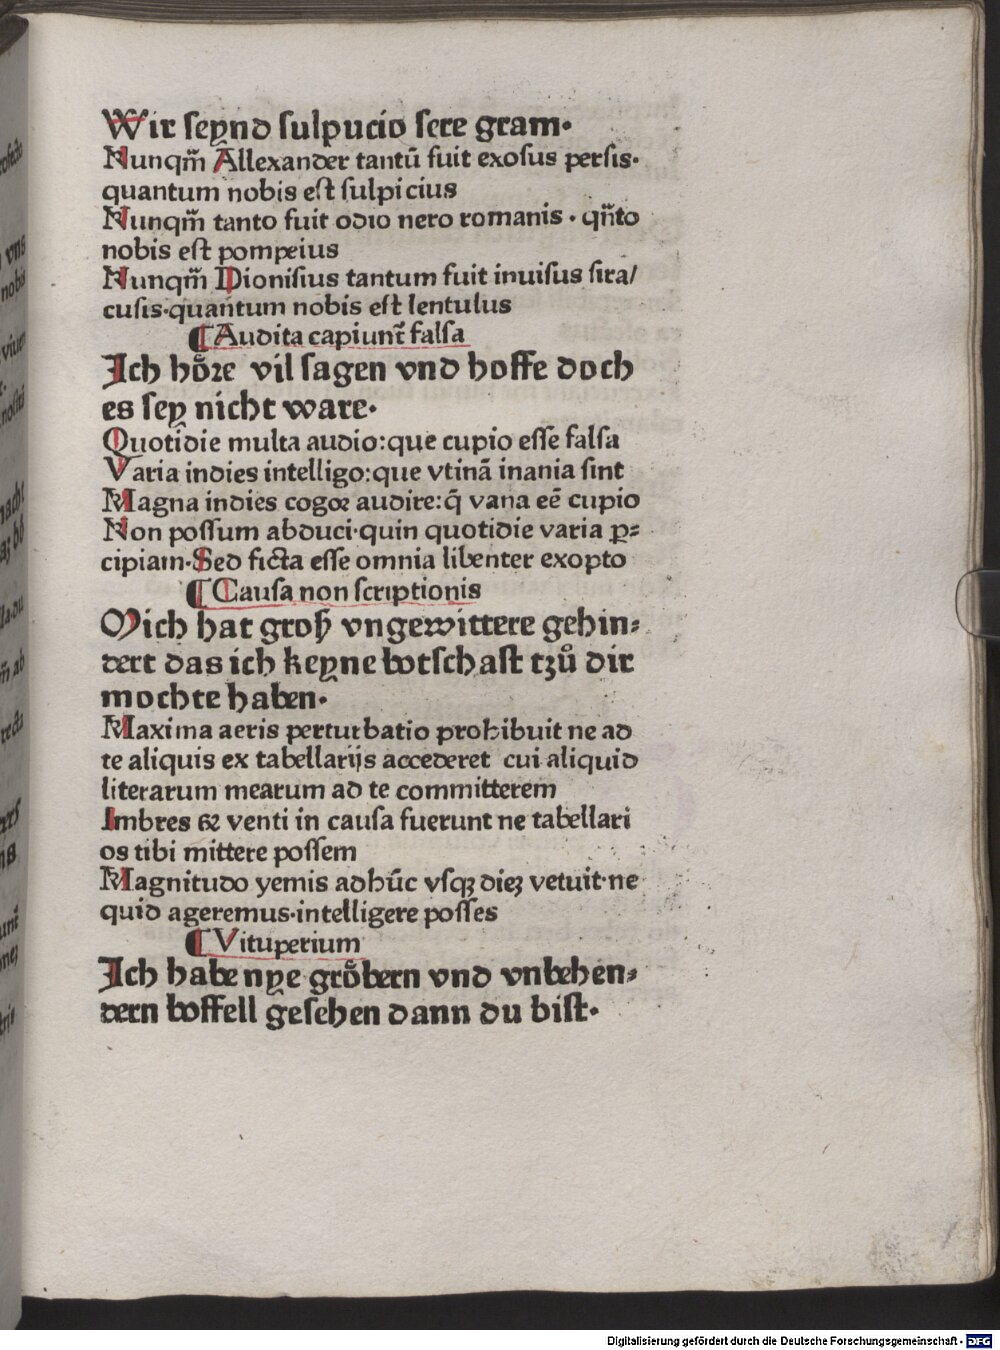 Wir ſeynd ſulpucio ſere gram·
Nunqm̄ Allexander tantū fuit exoſus perſis·
quantum nobis eſt ſulpicius
Nunqm̄ tanto fuit odio nero romanis · qn̄to
nobis eſt pompeius
Nunqm̄ Dioniſius tantum fuit inuiſus ſira/
cuſis·quantum nobis eſt lentulus
¶ Audita capiunt̄ falſa
Ich hoͤre vil ſagen vnd hoffe doch
es ſey nicht ware·
Quotidie multa audio:que cupio eſſe falſa
Varia indies intelligo:que vtinā inania ſint
Magna indies cogoꝛ audire:q̄ vana eē cupio
Non poſſum abduci·quin quotidie varia ꝑ⸗
cipiam·Sed ficta eſſe omnia libenter exopto
¶ Cauſa non ſcriptionis
Mich hat groß vngewittere gehin⸗
dert das ich keyne botſchaft tzuͦ dir
mochte haben·
Maxima aeris perturbatio prohibuit ne ad
te aliquis ex tabellarijs accederet cui aliquid
literarum mearum ad te committerem
Imbres ꝛ venti in cauſa fuerunt ne tabellari
os tibi mittere poſſem
Magnitudo yemis adhūc vſqꝫ dieꝫ vetuit·ne
quid ageremus·intelligere poſſes
¶ Vituperium
Ich habe nye groͤbern vnd vnbehen⸗
dern boffell geſehen dann du biſt·
Digitalisierung gefördert durch die Deutsche Forschungsgemeinschaft - DFG